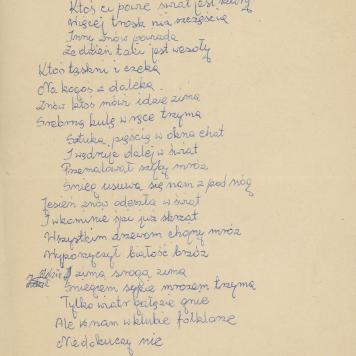 Ktoś ci powie świat jest
Więcej trosk niż szczęścia
Inny znów powiada
Że dzień taki jest wesoły
Ktoś tęskni i czeka
Na kogoś z daleka
Znów ktoś mówi idzie zima
Srebrną kulę w ręce trzyma
Sztuka pięścią w okna chat
I wędruje dalej w świat
Przemalował szyby mróz
Śnieg usuwa się nam z pod nóg
Jesień znów odeszła w świat
I w kominie śpi już skrzat
Wszystkim drzewom chojny mróz
Wypożyczył białość brzóz
zima sroga zima
Śniegiem sypie mrozem trzyma
Tylko wiatr gałęzie gnie
Ale nam w klubie folkloru
Nie dokuczy nie